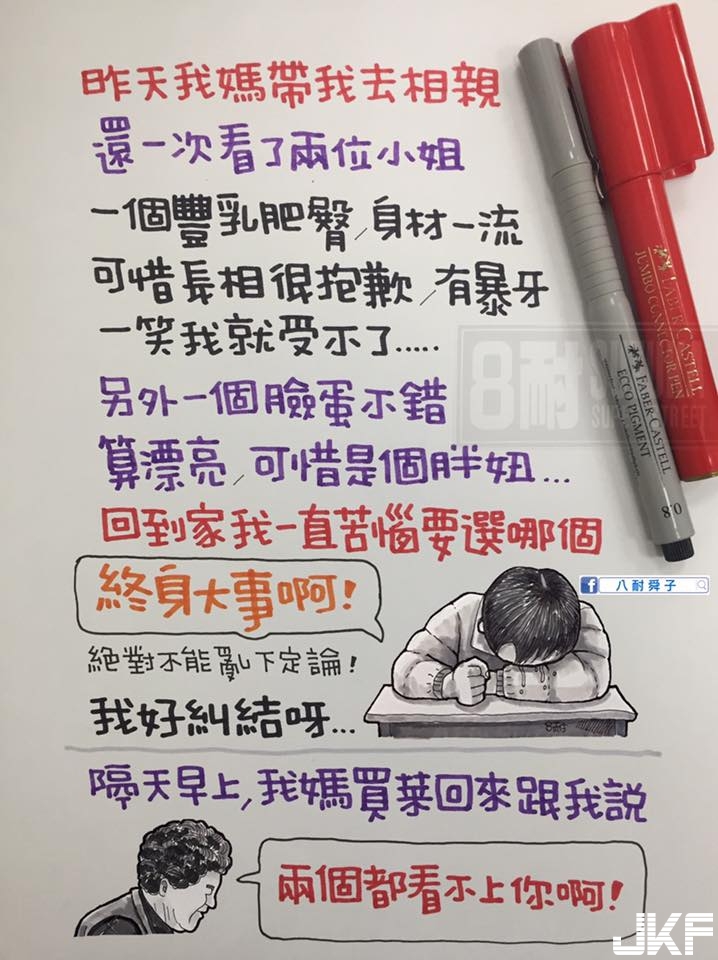 昨天我媽帶我去相親
還一次看了兩位小姐
一個豐乳肥臀,身材一流
可惜長相很抱歉,有暴牙
一笑我就受不了.....
另外一個臉蛋不錯
算漂亮,可惜是個胖妞...
回到家我一直苦惱要選哪個
終身大事啊!
絕對不能亂下定論!
我好糾結呀...
8耐
隔天早上,我媽買菜回來跟我說
兩個都看不上你啊!
FABER-CASTELL
JUMBO CONNECTOR PEN
FABER-CASTELL
ECCO PIGMENT
0.8
8耐
八耐舜子
JKF